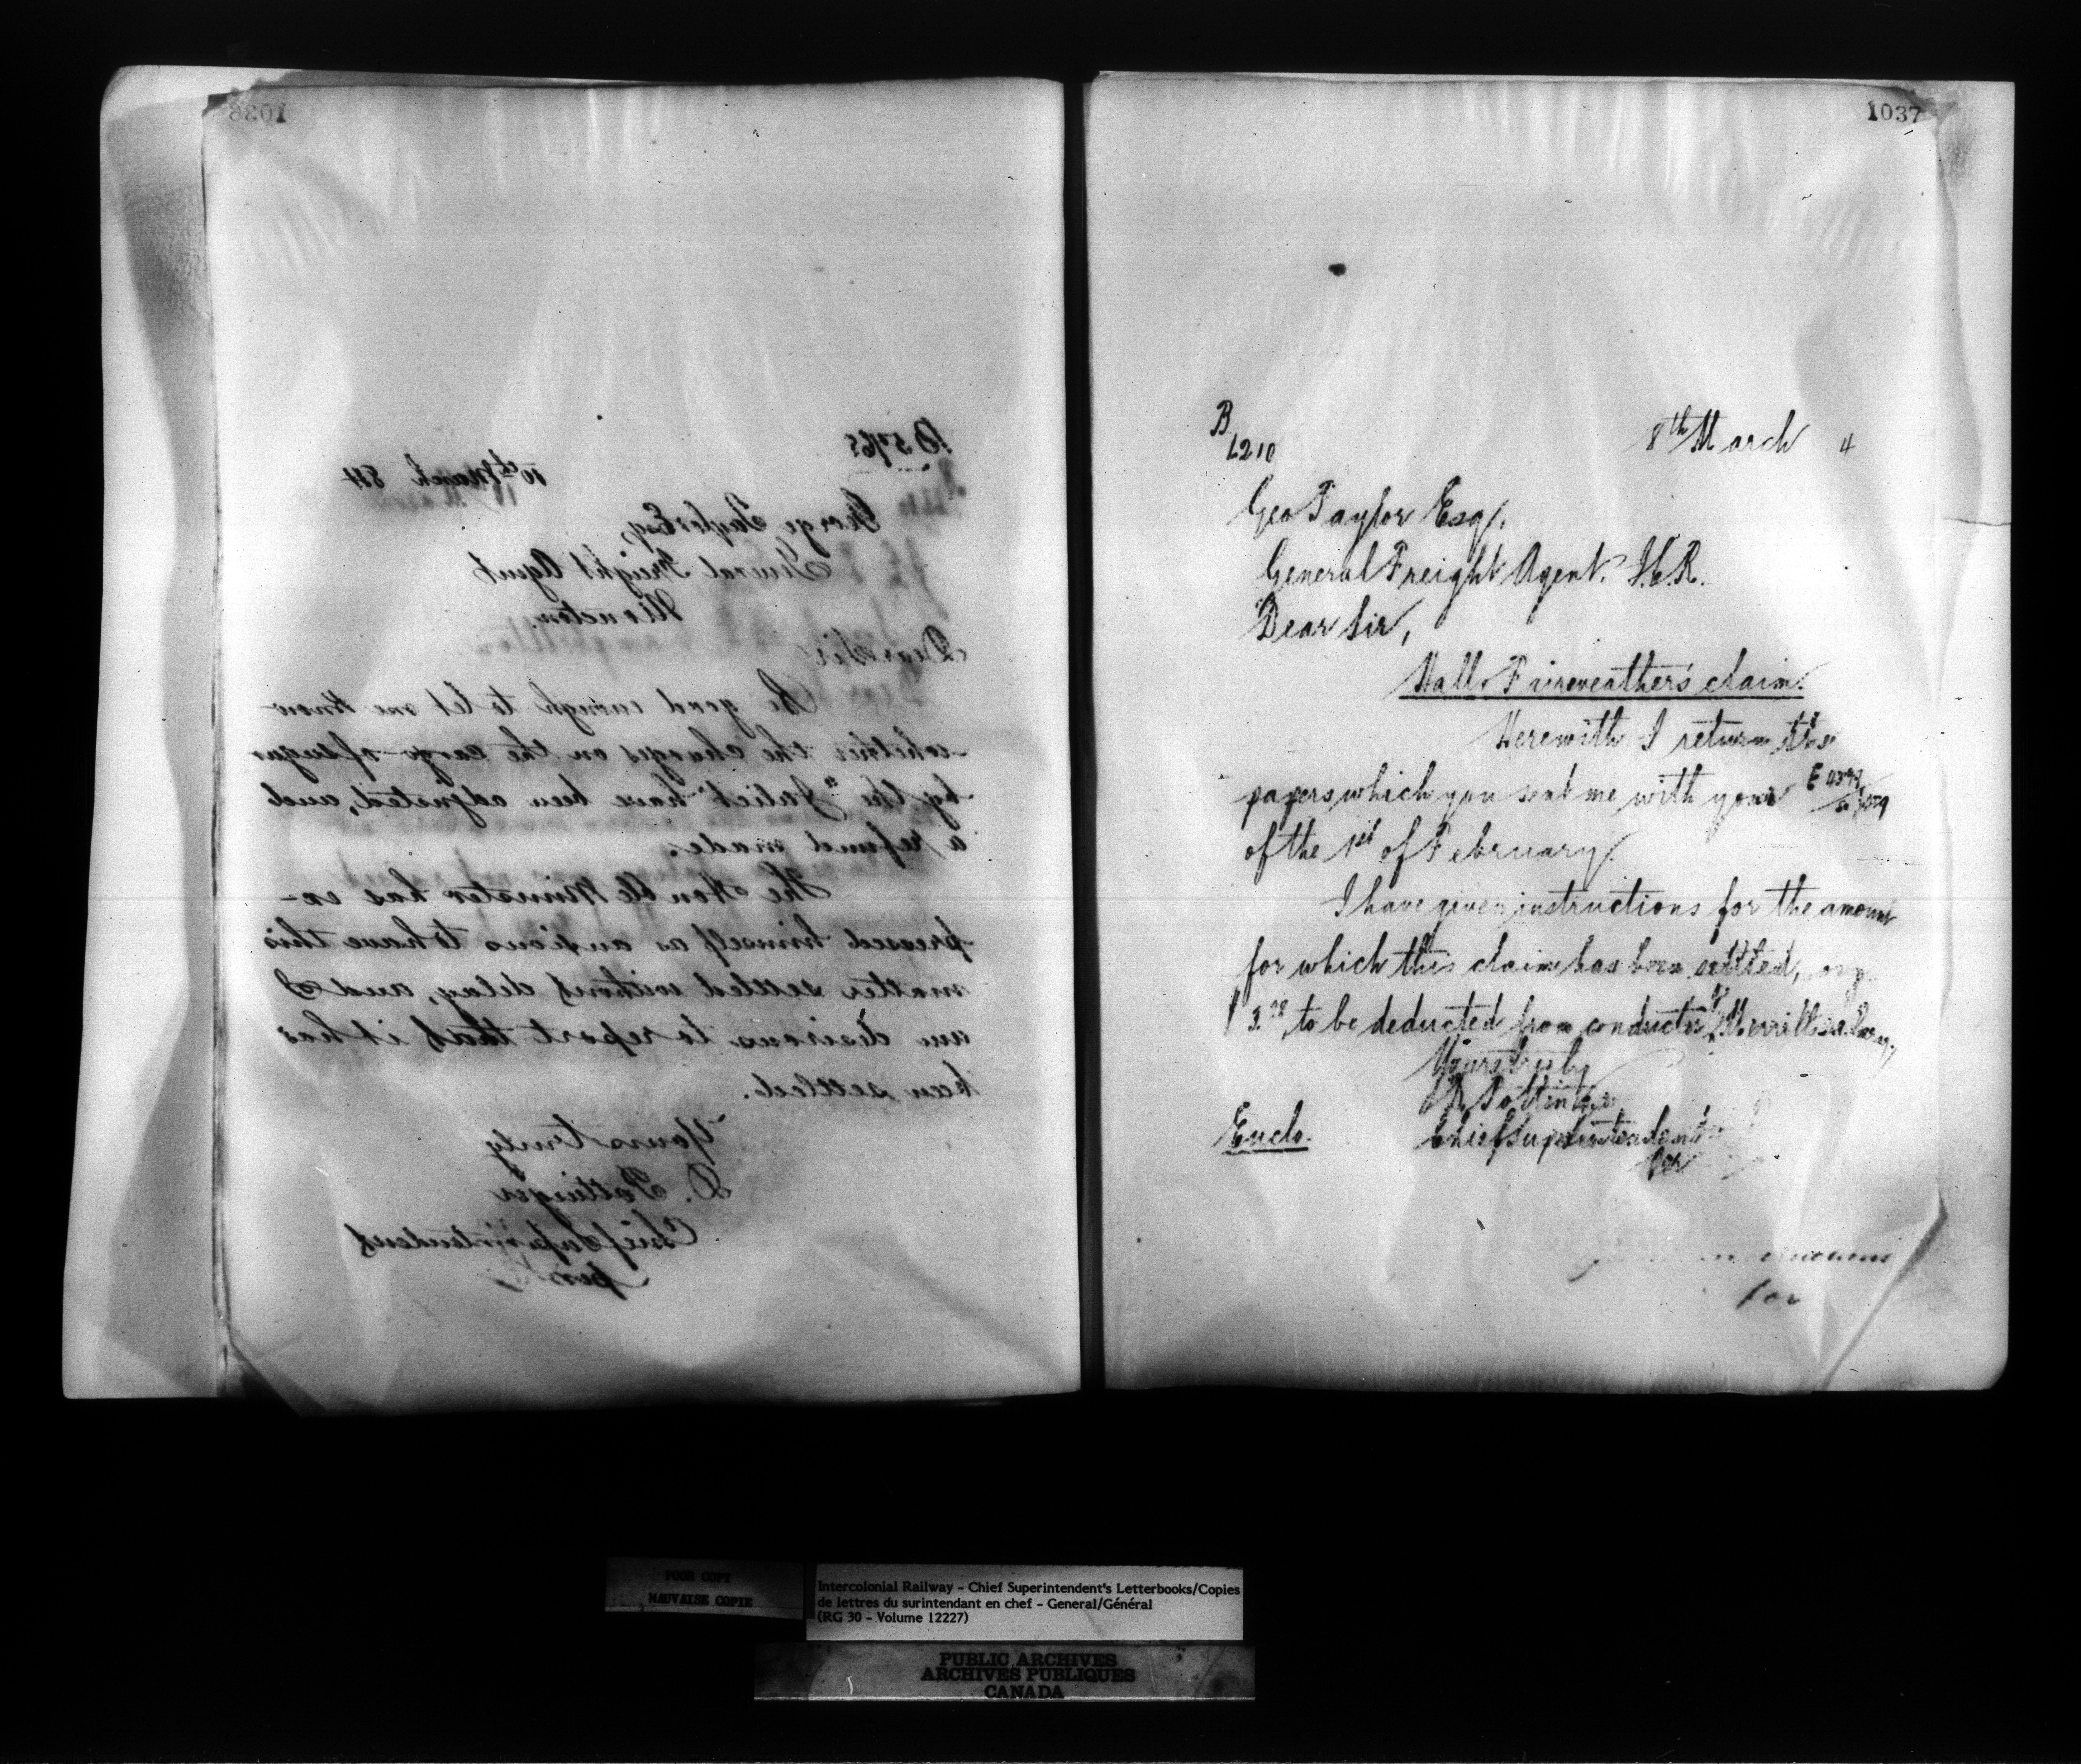 1036
B 5765
10th March 84
George Taylor Esq
General Freight Agent
Moncton.
Dear Sir
Be good enough to let me know
whether the charges on the cargo of sugar
by the "Juliet" have been adjusted, and
a refund made.
The Honble Minister has ex-
pressed himself as anxious to have this
matter settled without delay, and I
am desirous to report that it has
been settled.
Yours truly
D. Pottinger
Chief Superintendent
per
1037
B
6210
8th March 4
Geo Taylor Esq,
General Freight Agent. I.C.R.
Dear Sir,
Hall & Faireweather's claim.
Herewith I return the
papers which you sent me with your
of the 1st of February.
I have given instructions for the amount
for which this claim has been settled,
to be deducted from conductor Merrill's salary,
Yours truly
D Pottinger
Chief Superintendent
Enclo.
for
POOR COPY
MAUVAISE COPIE
Intercolonial Railway - Chief Superintendent's Letterbooks/Copies
de lettres du surintendant en chef - General/Général
(RG 30 - Volume 12227)
PUBLIC ARCHIVES
ARCHIVES PUBLIQUES
CANADA